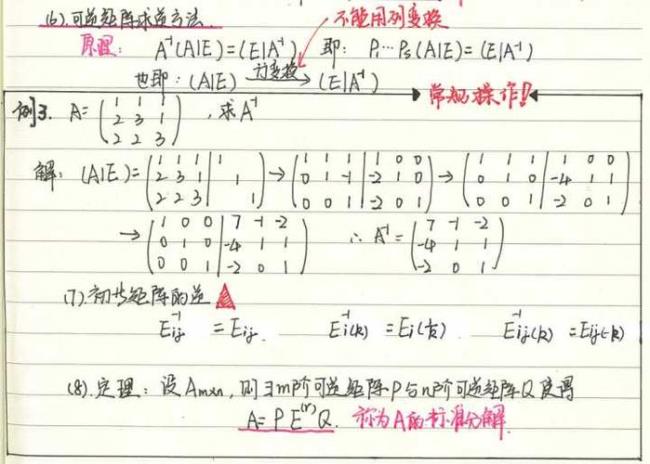 (6).可逆矩阵求逆方法. 不能用列变换
原理: A⁻¹(A|E)=(E|A⁻¹) 即: P₁…Ps(A|E)=(E|A⁻¹)
也即: (A|E) 行变换→ (E|A⁻¹)
常规操作!!
例3. A=(1 1 1; 2 3 1; 2 2 3), 求A⁻¹
解: (A|E)=(1 1 1 | 1; 2 3 1 | 1; 2 2 3 | 1) → (1 1 1 | 1 0 0; 0 1 -1 | -2 1 0; 0 0 1 | -2 0 1) → (1 1 1 | 1 0 0; 0 1 0 | -4 1 1; 0 0 1 | -2 0 1)
→ (1 0 0 | 7 -1 -2; 0 1 0 | -4 1 1; 0 0 1 | -2 0 1) ∴ A⁻¹=(7 -1 -2; -4 1 1; -2 0 1)
(7).初等矩阵的逆
Eij⁻¹ = Eij. Ei⁻¹(k) = Ei(1/k). Eij⁻¹(k) = Eij(-k)
(8).定理: 设Am×n, 则∃m阶可逆矩阵P与n阶可逆矩阵Q使得
A=PE⁽ʳ⁾Q. 称为A的标准分解.